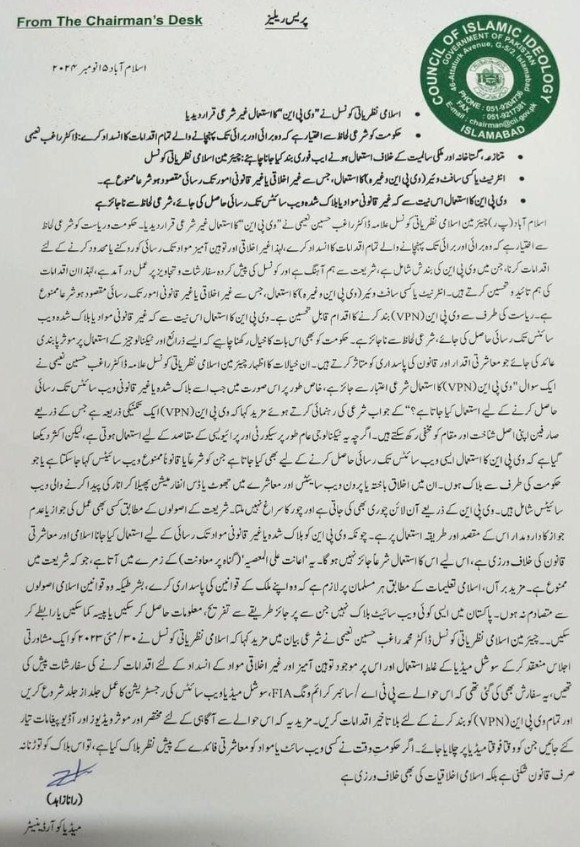 From The Chairman's Desk
پریس ریلیز
COUNCIL OF ISLAMIC IDEOLOGY
GOVERNMENT OF PAKISTAN
46-Attaturk Avenue, G-5/2, Islamabad
PHONE : 051-9204756
FAX : 051-9217381
E-mail : chairman@cii.gov.pk
ISLAMABAD
اسلام آباد ۱۵ نومبر ۲۰۲۴
• اسلامی نظریاتی کونسل نے ”وی پی این“ کا استعمال غیر شرعی قرار دیدیا
• حکومت کو شرعی لحاظ سے اختیار ہے کہ وہ برائی اور برائی تک پہنچانے والے تمام اقدامات کا انسداد کرے: ڈاکٹر راغب نعیمی
• متنازعہ، گستاخانہ اور ملکی سالمیت کے خلاف استعمال ہونے ایپ فوری بند کیا جانا چاہئے: چیئرمین اسلامی نظریاتی کونسل
• انٹرنیٹ یا کسی سافٹ وئیر (وی پی این وغیرہ) کا استعمال، جس سے غیر اخلاقی یا غیر قانونی امور تک رسائی مقصود ہو شرعاً ممنوع ہے۔
• وی پی این کا استعمال اس نیت سے کہ غیر قانونی مواد یا بلاک شدہ ویب سائٹس تک رسائی حاصل کی جائے، شرعی لحاظ سے ناجائز ہے
اسلام آباد (پ ر) چیئرمین اسلامی نظریاتی کونسل علامہ ڈاکٹر راغب حسین نعیمی نے ”وی پی این“ کا استعمال غیر شرعی قرار دیدیا۔ حکومت و ریاست کو شرعی لحاظ
سے اختیار ہے کہ وہ برائی اور برائی تک پہنچانے والے تمام اقدامات کا انسداد کرے، لہذا غیر اخلاقی اور توہین آمیز مواد تک رسائی کو روکنے یا محدود کرنے کے لئے
اقدامات کرنا، جن میں وی پی این کی بندش شامل ہے، شریعت سے ہم آہنگ ہے اور کونسل کی پیش کردہ سفارشات و تجاویز پر عمل درآمد ہے، لہذا ان اقدامات
کی ہم تائید و تحسین کرتے ہیں۔ انٹرنیٹ یا کسی سافٹ وئیر (وی پی این وغیرہ) کا استعمال، جس سے غیر اخلاقی یا غیر قانونی امور تک رسائی مقصود ہو شرعاً ممنوع
ہے۔ ریاست کی طرف سے وی پی این (VPN) بند کرنے کا اقدام قابل تحسین ہے۔ وی پی این کا استعمال اس نیت سے کہ غیر قانونی مواد یا بلاک شدہ ویب
سائٹس تک رسائی حاصل کی جائے، شرعی لحاظ سے ناجائز ہے۔ حکومت کو بھی اس بات کا خیال رکھنا چاہیے کہ ایسے ذرائع اور ٹیکنالوجیز کے استعمال پر موثر پابندی
عائد کی جائے جو معاشرتی اقدار اور قانون کی پاسداری کو متاثر کرتے ہیں۔ ان خیالات کا اظہار چیئرمین اسلامی نظریاتی کونسل علامہ ڈاکٹر راغب حسین نعیمی نے
ایک سوال ”وی پی این (VPN) کا استعمال شرعی اعتبار سے جائز ہے، خاص طور پر اس صورت میں جب اسے بلاک شدہ یا غیر قانونی ویب سائٹس تک رسائی
حاصل کرنے کے لیے استعمال کیا جاتا ہے؟“ کے جواب شرعی کی رہنمائی کرتے ہوئے مزید کہا کہ وی پی این (VPN) ایک تکنیکی ذریعہ ہے جس کے ذریعے
صارفین اپنی اصل شناخت اور مقام کو مخفی رکھ سکتے ہیں۔ اگرچہ یہ ٹیکنالوجی عام طور پر سیکورٹی اور پرائیویسی کے مقاصد کے لیے استعمال ہوتی ہے، لیکن اکثر دیکھا
گیا ہے کہ وی پی این کا استعمال ایسی ویب سائٹس تک رسائی حاصل کرنے کے لیے بھی کیا جاتا ہے جن کو شرعاً یا قانوناً ممنوع ویب سائٹس کہا جا سکتا ہے یا جو
حکومت کی طرف سے بلاک ہوں۔ ان میں اخلاق باختہ یا پورن ویب سایٹس اور معاشرے میں جھوٹ یا ڈس انفارمیشن پھیلا کر انارکی پیدا کرنے والی ویب
سائٹس شامل ہیں۔ وی پی این کے ذریعے آن لائن چوری بھی کی جاتی ہے اور چور کا سراغ نہیں ملتا۔ شریعت کے اصولوں کے مطابق کسی بھی عمل کی جواز یا عدم
جواز کا دار و مدار اس کے مقصد اور طریقہ استعمال پر ہے۔ چونکہ وی پی این کو بلاک شدہ یا غیر قانونی مواد تک رسائی کے لیے استعمال کیا جانا اسلامی اور معاشرتی
قانون کی خلاف ورزی ہے، اس لیے اس کا استعمال شرعاً جائز نہیں ہو گا۔ یہ ’اعانت علی المعصیہ‘ (گناہ پر معاونت) کے زمرے میں آتا ہے، جو کہ شریعت میں
ممنوع ہے۔ مزید برآں، اسلامی تعلیمات کے مطابق ہر مسلمان پر لازم ہے کہ وہ اپنے ملک کے قوانین کی پاسداری کرے، بشرطیکہ وہ قوانین اسلامی اصولوں
سے متصادم نہ ہوں۔ پاکستان میں ایسی کوئی ویب سائیٹ بلاک نہیں جن سے پر جائز طریقے سے تفریح، معلومات حاصل کر سکیں یا پیسہ کما سکیں یا رابطے کر
سکیں۔۔ چیئرمین اسلامی نظریاتی کونسل ڈاکٹر محمد راغب حسین نعیمی نے شرعی بیان میں مزید کہا کہ اسلامی نظریاتی کونسل نے ۳۰/مئی ۲۰۲۳ کو ایک مشاورتی
اجلاس منعقد کر کے سوشل میڈیا کے غلط استعمال اور اس پر موجود توہین آمیز اور غیر اخلاقی مواد کے انسداد کے لئے اقدامات کرنے کی سفارشات پیش کی
تھیں، یہ سفارش بھی کی گئی تھی کہ اس حوالے سے پی ٹی اے / سائبر کرائم ونگ FIA، سوشل میڈیا ویب سائٹس کی رجسٹریشن کا عمل جلد از جلد شروع کریں
اور تمام وی پی این (VPN) کو بند کرنے کے لئے بلا تاخیر اقدامات کریں۔ مزید یہ کہ اس حوالے سے آگاہی کے لئے مختصر اور موثر ویڈیوز اور آڈیو پیغامات تیار
کئے جائیں جن کو وقتاً فوقتاً میڈیا پر چلایا جائے۔ اگر حکومت وقت نے کسی ویب سائٹ یا مواد کو معاشرتی فائدے کے پیش نظر بلاک کیا ہے، تو اس بلاک کو توڑنا نہ
صرف قانون شکنی ہے بلکہ اسلامی اخلاقیات کی بھی خلاف ورزی ہے
(رانا زاہد)
میڈیا کوآرڈینیٹر